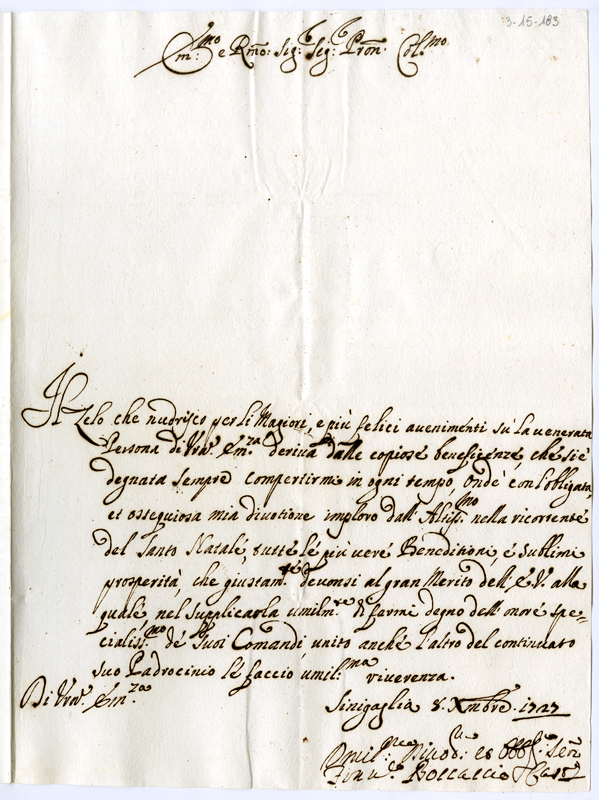 3-15-183
Em:mo e Rmo: Sig: Sig: Pron: Col:mo
Il Zelo che nudrisco per li Magiori, e più felici avenimenti su la venerata
Persona di Vra. Em:za deriva dalle copiose beneficenze, che si è
degnata sempre compertirmi in ogni tempo, onde con l'obligata,
et ossequiosa mia divotione imploro dall'Altiss:mo nella ricorrente
del Santo Natale, tutte le più vere Beneditioni, e sublimi
prosperità, che giustam:te devonsi al gran Merito dell'E. V. alla
quale, nel supplicarla umilm:te di farmi degno dell'onore spe=
cialiss:mo de' Suoi Comandi, unito anche l'altro del continuato
suo Padrocinio le faccio umil:ma riverenza.
Di Vra. Em:za
Sinigaglia 8. Xmbre. 1727
Umil:mo Divod: es Obb: Ser:
Boccaccio